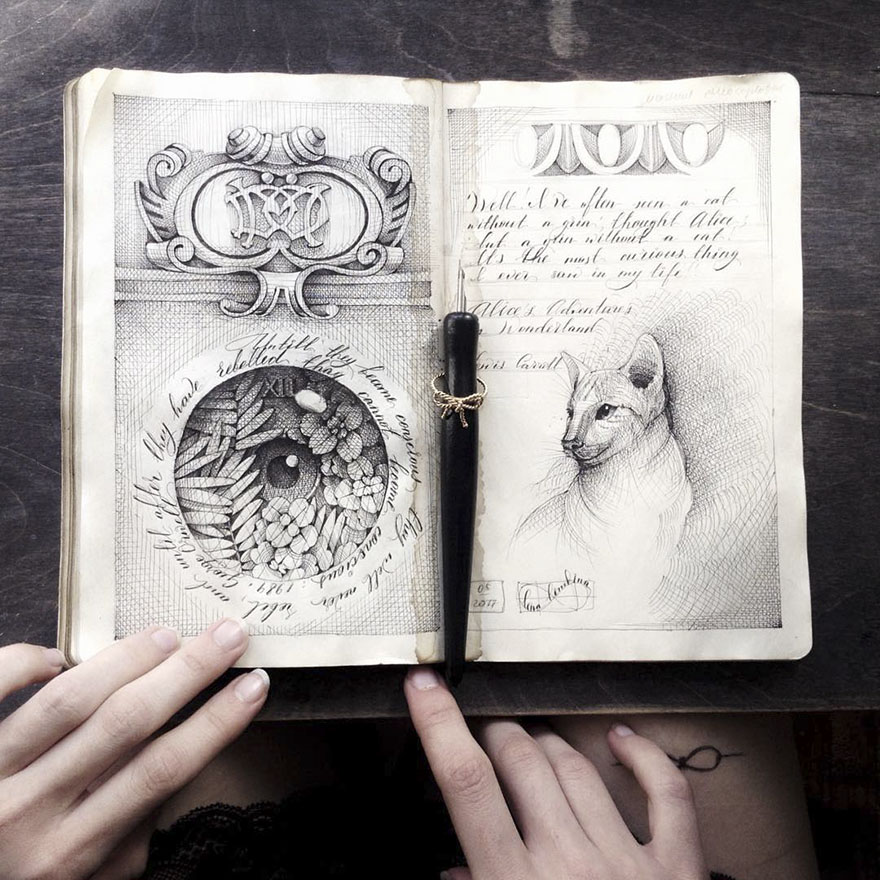 Untill they became conscious they will never rebel,
and untill after they have rebelled they cannot become conscious: 1984; George
XIII
Well! I've often seen a cat
without a grin; thought Alice;
but a grin without a cat
It's the most curious thing
I ever saw in my life!
Alice's Adventures
in Wonderland
Lewis Carroll
05
2017